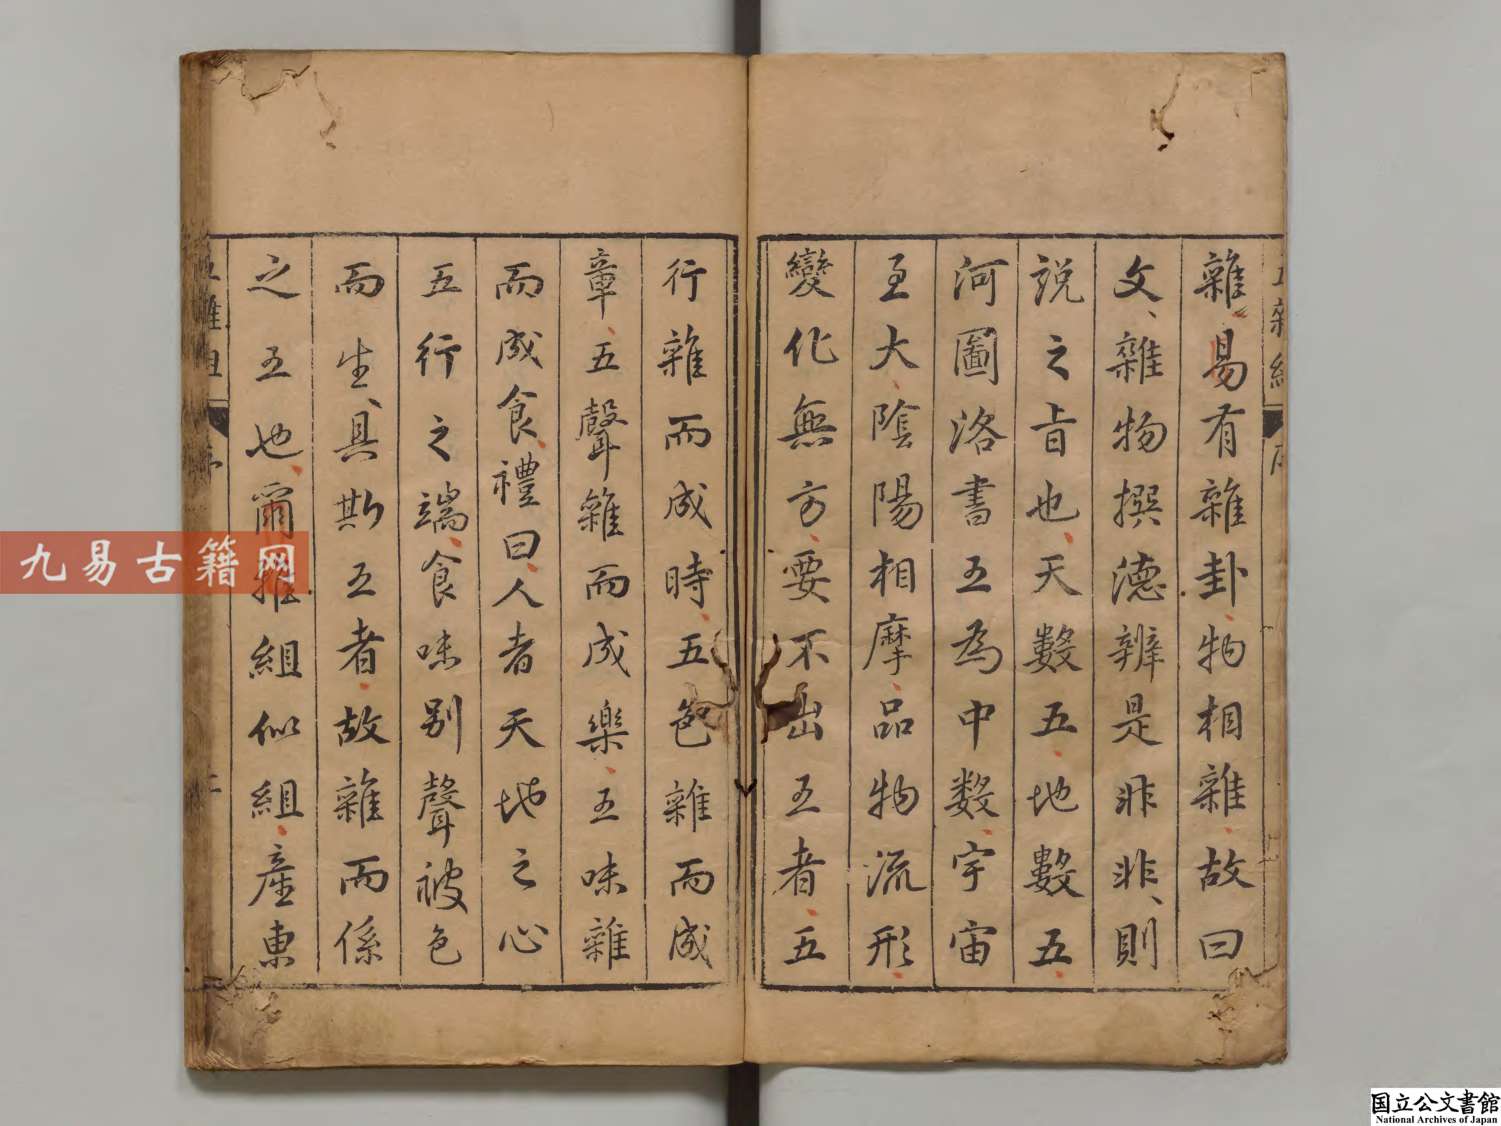 雜易有雜卦物相雜故曰
文雜物撰德辨是非非則
説之㫖也天數五地數五
河圖洛書五為中數宇宙
至大陰陽相摩品物流形
變化無方要不出五者五
行雜而成時五色雜而成
章五聲雜而成樂五味雜
而成食禮曰人者天地之心
五行之端食味别聲被色
而生具斯五者故雜而係
之五也爾雅組似組産東
五雜組
序
九易古籍网
国立公文書館
National Archives of Japan